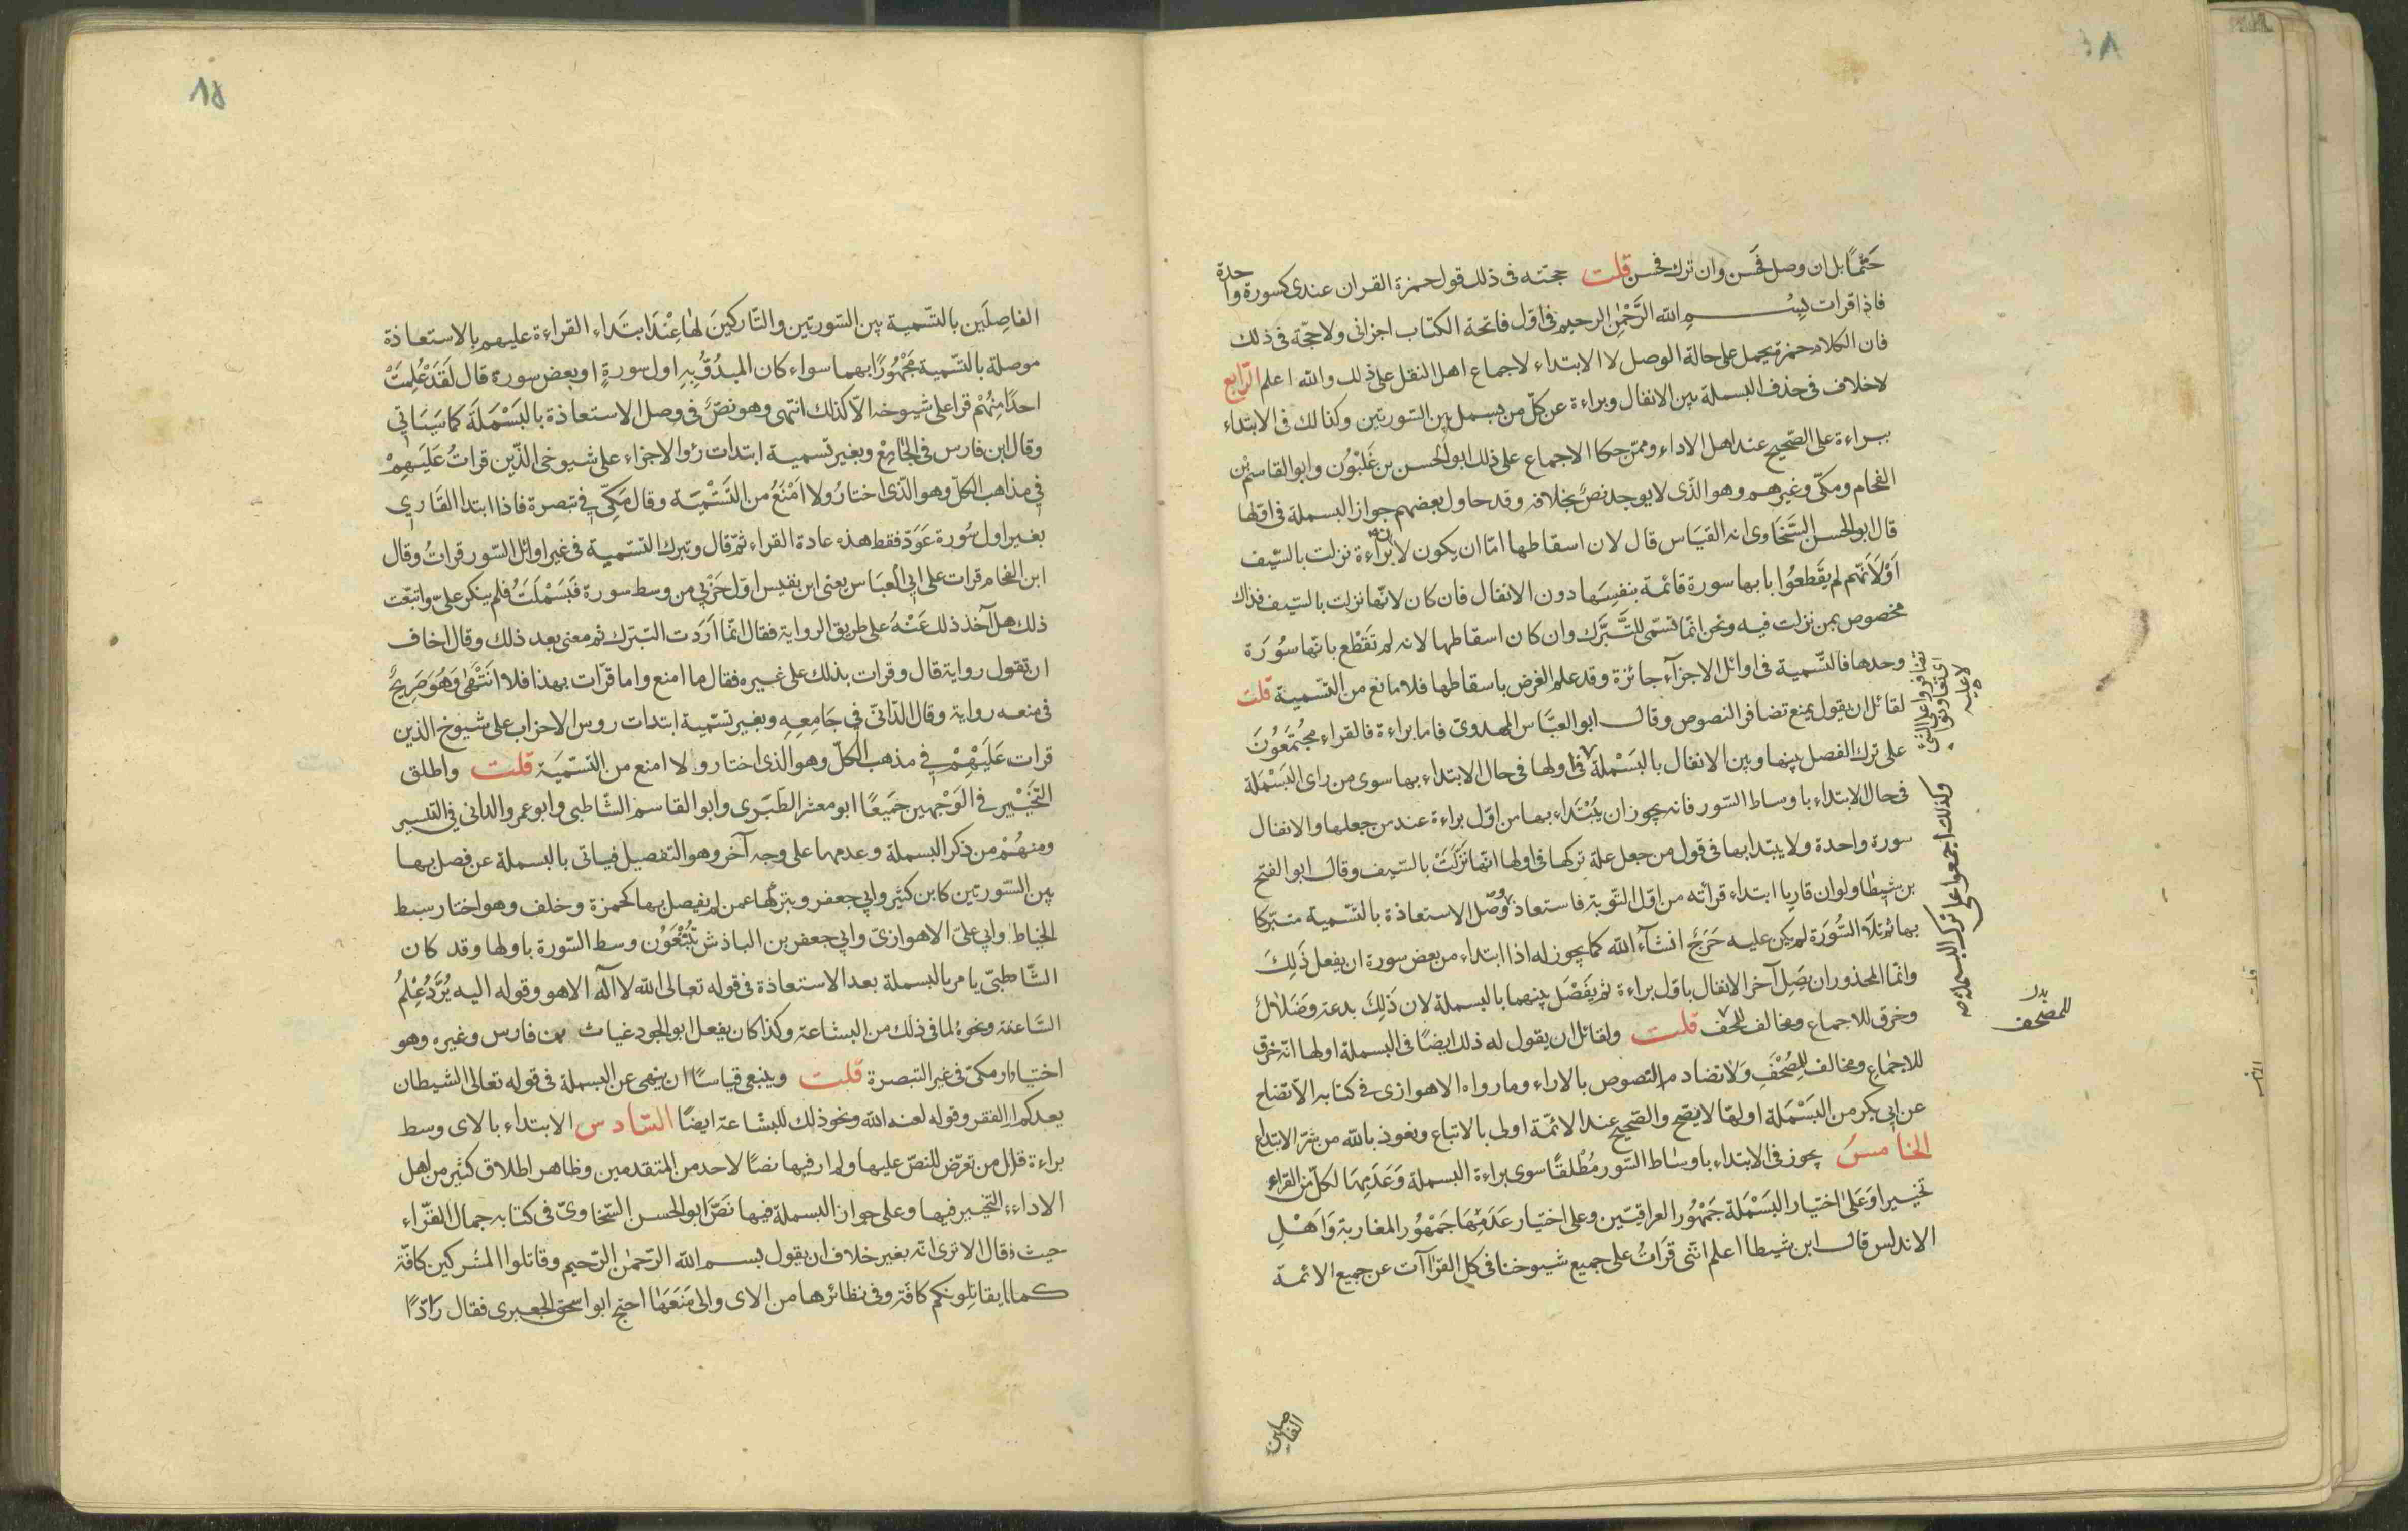 حَتْمًا بل ان وصل فحَسن وان ترك فحسن قلت حجته فى ذلك قول حمزة القران عندى كسورة واحدة
فاذا قرات بِسْمِ الله الرَّحْمٰنِ الرحيم فى اوّل فاتحة الكتاب اجزانى ولا حجّة فى ذلك
فان الكلام حمزة يحمل على حالة الوصل لا الابتداء لاجماع اهل النقل على ذلك والله اعلم الرّابع
لاخلاف فى حذف البسملة بين الانفال وبراءة عن كلّ من بسمل بين السورتين وكذالك فى الابتداء
ببراءة على الصّحيح عند اهل الاداء وممّن حكا الاجماع على ذلك ابو الحسن بن غَلْبُون وابو القاسم بْن
الفحام ومكّى وغيرهم وهو الذى لا يوجد نصّ بخلافه وقد حاول بعضهم جواز البسملة فى اوّلها
قال ابو الحسن السَّخَاوى انه القيَاس قال لان اسقاطها امّا ان يكون لان براءة نزلت بالسّيف
اَوْلَانّهم لم يقَطعُوا بابها سورة قائمة بنفسِهَا دون الانفال فان كان لانّها نزلت بالسّيف فذاك
مخصوص بمن نزلت فيه ونحن انّما نسمّى للتَّبَرُّك وان كان اسقاطها لانه لم تَقَطْع بانّها سُورَة
وحدها فالتَّسمية فى اوائل الاجزآء جائزة وقد علم الغرض باسقاطها فلا مانع من التّسمية قلت
لقائل ان يقول يمنع تضافر النصوص وقال ابو العبَّاس المهدوىّ فاما براءة فالقراء مجْتَمِعُونَ
على ترك الفصل بينها وبين الانفال بالبَسْملة فى اولها فى حال الابتداء بها سوى من راى البَسْمَلة
فى حال الابتداء باوساط السّور فانه يجوز ان يُبْتَداء بها من اوّل براءة عند من جعلها والانفال
سورة واحدة ولا يبتدا بها فى قول من جعل علة تركها فى اولها انّها نَزَلَتْ بالسّيف وقال ابو الفتح
بن شيطا ولو ان قاريا ابتداء قرأته من اوّل التّوبة فاستعاذ ووصل الاستعاذة بالتّسمية متبرّكا
بها ثمّ تلَا السُّورَة لم يكن عليه حَرَجٌ انشآء الله كما يجوز له اذا ابتداء من بعض سورة ان يفعل ذَلِكَ
وانّما المحذور ان يصِل آخر الانفال باوّل براءة ثم يَفَصْل بينهما بالبسملة لان ذَلِكَ بدعة وضَلَالٌ
وخرق للاجماع ومخالف للحف قلت ولقائل ان يقول له ذلك ايضًا فى البسملة اولها انّه خرق
للاجمَاع ومخالف للِصُحْفَ ولَا تضاد م النصوص بالاراء وما رواه الاهوازى فى كتابه الاتضاح
عن ابى بكر من البَسْمَلة اولهَا لا يصّح والصّحيح عند الائمّة اولى بالاتباع ونعوذ بالله من شرّ الابتداع
الخامس يجوز فى الابتداء باوساط السّور مُطْلقًا سوى براءة البسملة وَعَدَمِهَا لكلّ من القراء
تخييرا وَعَلى اختيار البَسْمَلَة جَمْهُور العراقيّين وعلى اختيار عَدَمِهَا جَمْهُور المغاربة وَاَهْلِ
الاندلس قال ابن شيطا اعلم انّنى قرَاتُ على جميع شيوخنا فى كل القرّاآت عن جميع الائمة
لا عليه
وكذلك اجمعوا على ترك البسملة
للمصحف
الفاصلين
١٥
الفاصِلَين بالتّسمية بين السّورتين والتّاركينَ لهَا عِنْدَ ابتَداء القراءة عليهم بِالاستعاذة
موصلة بالتّسمية مَجْهُورًا بهما سواء كان المبدُوُّ بِه اول سورةٍ او بعض سورة قال لَقَدْ عُلِمَتْ
احدًا مِنْهُم قرا على شيوخه الّا كذلك انتهى وهو نصٌّ فى وصل الاستعاذة بالبَسْمَلَة كما سَيَاتى
وقال ابن فارس فى الجَامِعْ وبغير تسمية ابتدات رؤ الاجزاء على شيوخى الذّين قراتُ عَلَيهِمْ
فى مذاهب الكلّ وهو الّذى اختارُ ولا اَمْنَعُ من التَسْمِيَة وقال مَكىّ فى تبصرة فاذا ابتدا القَارى
بغير اول سُورة عَوّذ فقط هذه عادة القراء ثمّ قال وتبرك التسمية فى غير اوائل السّور قراتُ وقال
ابن الفحام قرات على ابى العبَاس يعنى ابن نفيس اوّل حَزْبى من وسط سورة فَبَسْمَلَتُ فلم ينكر علىّ واتبعت
ذلك هل آخذ ذلك عَنْهُ على طريق الرواية فقال انّما اَرَدَت التّبرك ثم معنى بعد ذلك وقال اخاف
ان تقول رواية قال وقرات بذلك على غيره فقال ما امنع واما قرّات بهذا فلا انتَهَى وَهُوَ صَرِيحٌ
فى منعه رواية وقال الدّانىّ فى جَامِعِهِ وبغير تسّمية ابتدات روس الاحزاب على شيوخ الذين
قرات عَلَيْهِمْ فى مذهب الكلّ وهو الذى اختار ولا امنع من التسّميَة قلت واطلق
التَخْيير فى الوَجْهَين جَميَعًا ابو معشر الطَبَرى وابو القاسم الشّاطبى وابو عمر والدانى فى التلسير
ومنهُمْ من ذكر البسملة وعدمها على وجه آخر وهو التفصيل فياتى بالبسملة عن فصل بها
بين السّورتين كابن كثير وابى جعفر وبتركها عمن لم يفصل بها كحمزة وخلف وهو اختار سبط
الخياط وابى علىّ الاهوازىّ وابى جعفر بن الباذش يتّبِعُون وسط السّورة باولها وقد كان
الشّاطبىّ يامر بالبسملة بعد الاستعاذة فى قوله تعالى الله لا آله الا هو وقوله اليه يُرَّدُ عِلْمُ
السَّاعة ونحوهُ لما فى ذلك من البشاعة وكذا كان يفعل ابو الجود غياث بن فارس وغيره وهو
اختيار مكىّ فى غير التبصرة قلت وينبغى قياسًا ان ينهى عن البسملة فى قوله تعالى الشيطان
يعدكم الفقر وقوله لعنه الله ونحو ذلك للبشاعة ايضًا السّادس الابتداء بالاى وسط
براءة قلّ من تعرّض للنصّ عليها ولم ار فيها نصًا لاحد من المتقدمين وظاهر اطلاق كثير من اهل
الاداء التخيير فيها وعلى جواز البسملة فيها نَصَّ ابو الحسن السّخاوىّ فى كتابه جمال القرّاء
حيث قال الا ترى انّه بغير خلاف ان يقول بسم الله الرّحمٰن الرّحيم وقاتلوا المشركين كافّة
كما يقاتِلونكم كافّة وفى نظائرها من الاى والى مَنَعَهَا احتج ابو اسحق الجعبرى فقال رَادًّا